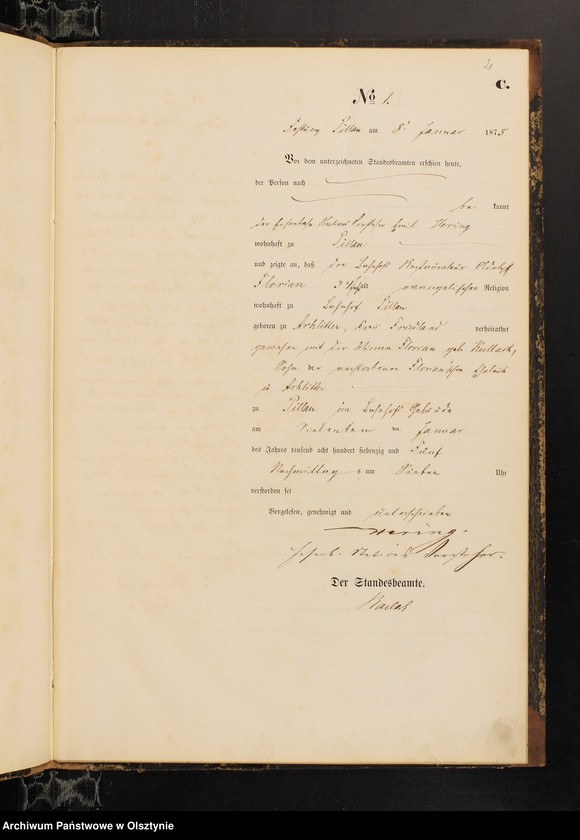 2
C.
No 1.
Festung Pillau am 8. Januar 1875
Vor dem unterzeichneten Standesbeamten erschien heute,
der Person nach
be kannt
der Eisenbahn Stations Vorsteher Emil Hering
wohnhaft zu Pillau
und zeigte an, daß der Bahnhofs Restaurateur Adolph
Florian alt evangelischer Religion
wohnhaft zu Bahnhof Pillau
geboren zu Arklitten, Kreis Friedland verheirathet
gewesen mit der Minna Florian geb. Kullack,
Sohn der verstorbenen Florian'schen Eheleute
in Arklitten
zu Pillau im Bahnhofs Gebäude
am Siebenten ten Januar
des Jahres tausend acht hundert siebenzig und Fünf
Nachmittag s um Sieben Uhr
verstorben sei
Vorgelesen, genehmigt und unterschrieben
Hering
Stations Vorsteher.
Der Standesbeamte.
Archiwum Państwowe w Olsztynie